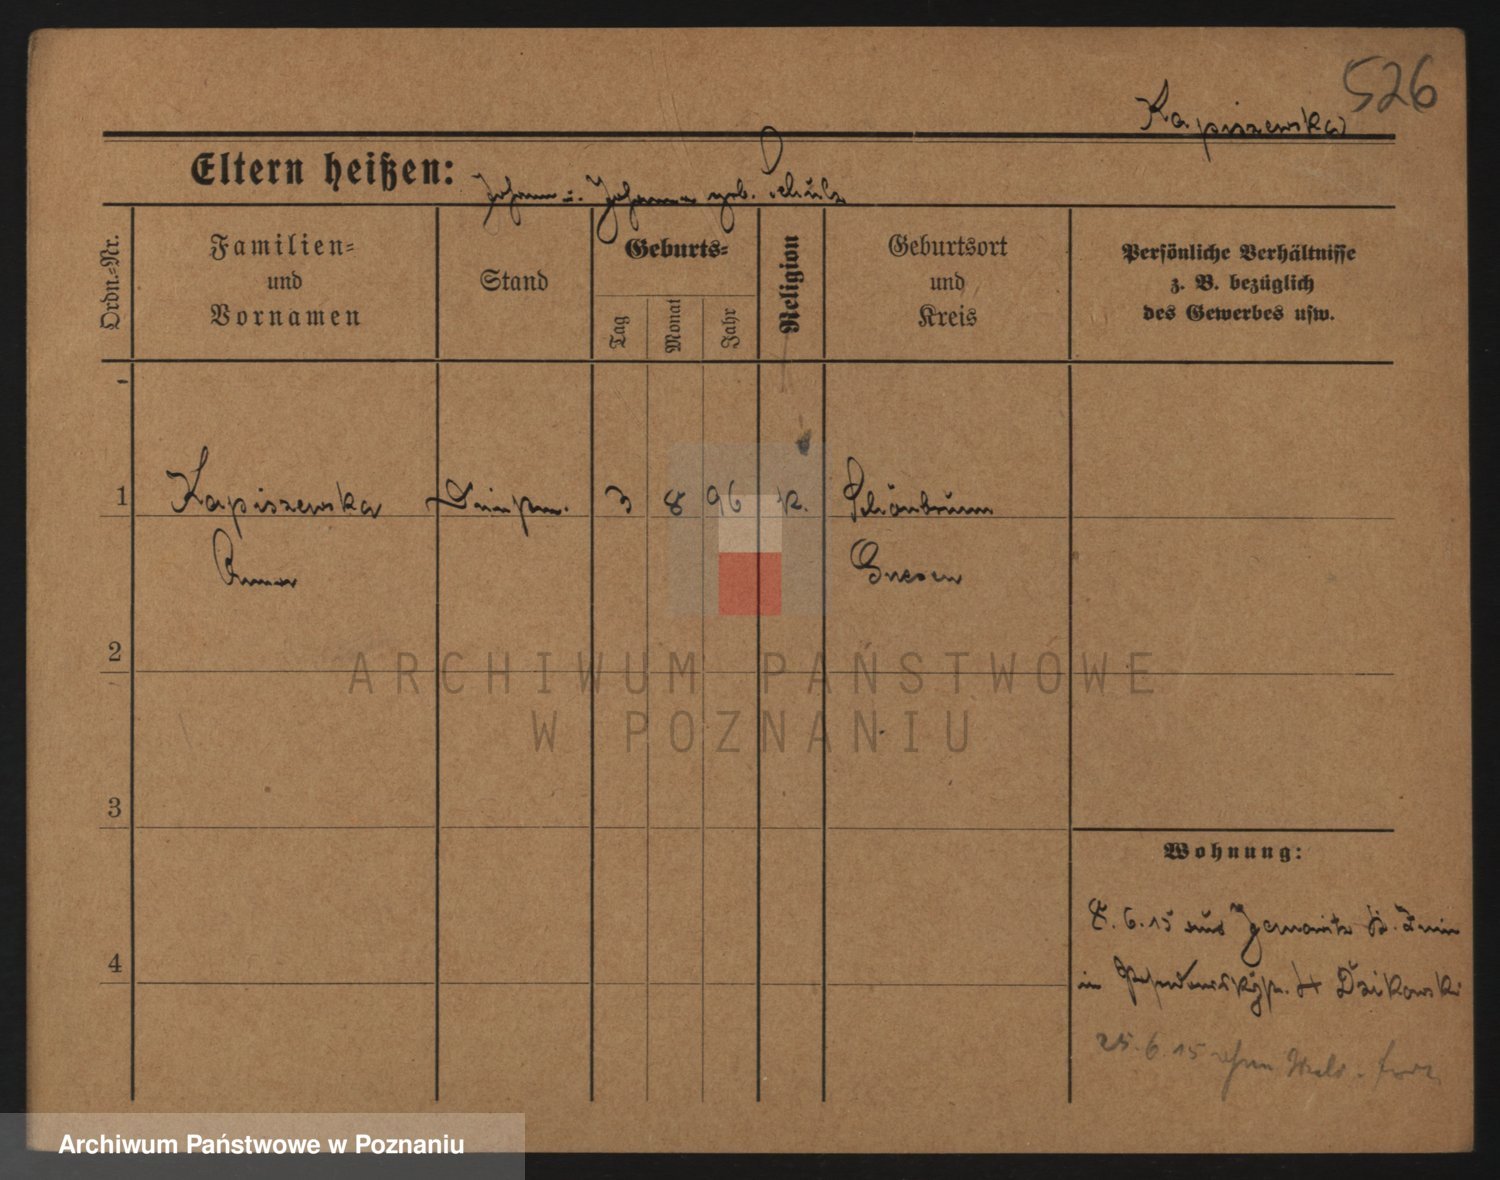 526
Kapiszewska
Eltern heißen: Johann u. Johanna geb. Schulz
Ordn.-Nr.
Familien-
und
Vornamen
Stand
Geburts-
Tag
Monat
Jahr
Religion
Geburtsort
und
Kreis
Persönliche Verhältnisse
z. B. bezüglich
des Gewerbes usw.
1 Kapiszewska 3 8 96 k. Schönbrunn
Anna Gnesen
2
3
4
Wohnung:
8. 6. 15 aus Janowitz Kr. Znin
in 4 Dzikowski
25. 6. 15 ohne fort
ARCHIWUM PAŃSTWOWE
W POZNANIU
Archiwum Państwowe w Poznaniu